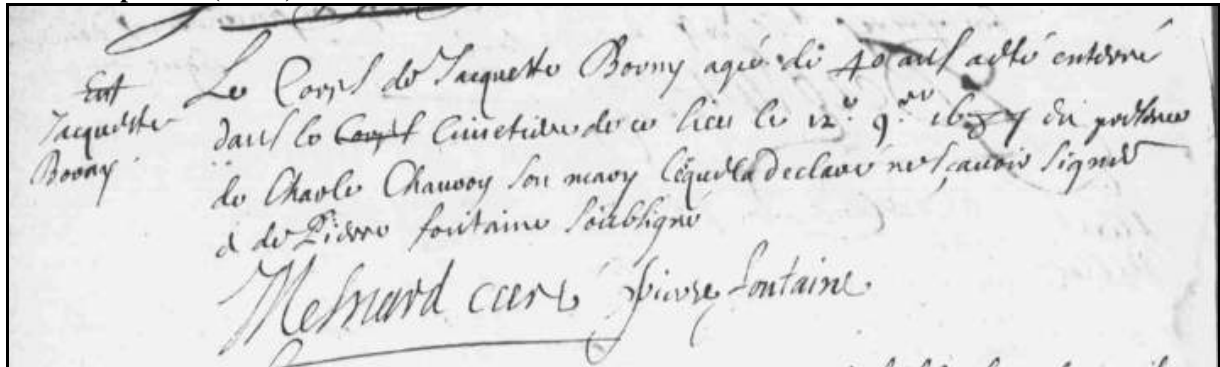 Ent
Jacquette
Bovny
Le Corps de Jacquette Bovny agée de 40 ans a esté enterré
dans le Corps Cimetiere de ce lieu le 12e 9re en presence
de Charle Chauvoy son mary lequel a declaré ne sçavoir signer
& de Pierre fontaine soubsigné
Mesnard curé pierre fontaine